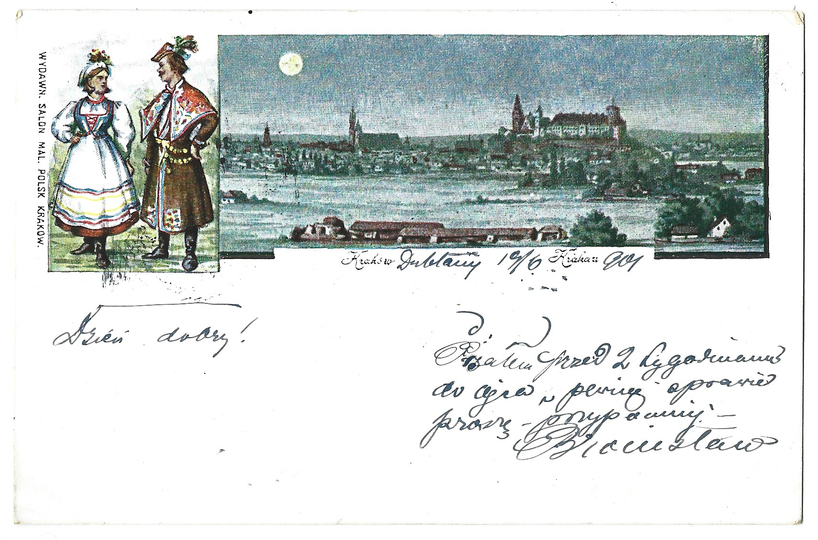 WYDAWN. SALON MAL. POLSK. KRAKOW.
Kraków Dublany 19/6 Krakau 901
Dzień dobry!
Pisałem przed 2 tygodniami
do ojca w pewnej sprawie
proszę – przypomnij –
Bronisław